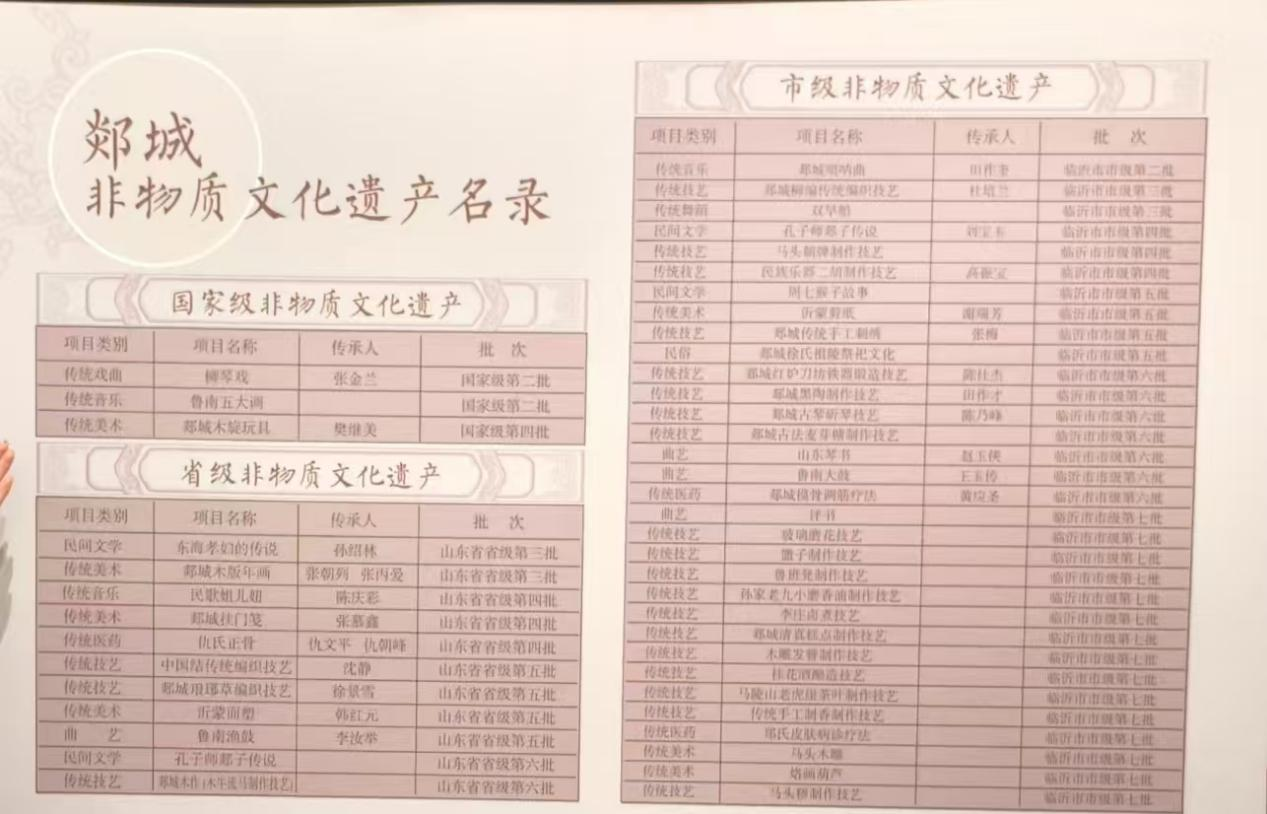 郯城
非物质文化遗产名录
国家级非物质文化遗产
项目类别 项目名称 传承人 批 次
传统戏曲 柳琴戏 张金兰 国家级第二批
传统音乐 鲁南五大调 国家级第二批
传统美术 郯城木旋玩具 樊继美 国家级第四批
省级非物质文化遗产
项目类别 项目名称 传承人 批 次
民间文学 东海孝妇的传说 孙绍林 山东省省级第三批
传统美术 郯城木版年画 张朝列 张丙爱 山东省省级第三批
传统音乐 民歌姐儿妞 陈庆彩 山东省省级第四批
传统美术 郯城挂门笺 张慕鑫 山东省省级第四批
传统医药 仇氏正骨 仇文平 仇朝峰 山东省省级第四批
传统技艺 中国结传统编织技艺 沈静 山东省省级第五批
传统技艺 郯城琅琊草编织技艺 徐景雪 山东省省级第五批
传统美术 沂蒙面塑 韩红元 山东省省级第五批
曲 艺 鲁南渔鼓 李汝举 山东省省级第五批
民间文学 孔子师郯子传说 山东省省级第六批
传统技艺 郯城木作(木牛流马制作技艺) 山东省省级第六批
市级非物质文化遗产
项目类别 项目名称 传承人 批 次
传统音乐 郯城唢呐曲 田作奎 临沂市市级第二批
传统技艺 郯城柳编传统编织技艺 杜培兰 临沂市市级第三批
传统舞蹈 双旱船 临沂市市级第三批
民间文学 孔子师郯子传说 临沂市市级第四批
传统技艺 马头朝牌制作技艺 临沂市市级第四批
传统技艺 民族乐器二胡制作技艺 高振宝 临沂市市级第四批
民间文学 周七猴子故事 临沂市市级第五批
传统美术 沂蒙剪纸 谢瑞芳 临沂市市级第五批
传统技艺 郯城传统手工刺绣 张梅 临沂市市级第五批
民俗 郯城徐氏祖陵祭祀文化 临沂市市级第五批
传统技艺 郯城红炉刀坊铁器锻造技艺 陈仕杰 临沂市市级第六批
传统技艺 郯城黑陶制作技艺 田作才 临沂市市级第六批
传统技艺 郯城古琴斫琴技艺 陈乃峰 临沂市市级第六批
传统技艺 郯城古法麦芽糖制作技艺 临沂市市级第六批
曲艺 山东琴书 赵玉侠 临沂市市级第六批
曲艺 鲁南大鼓 王玉传 临沂市市级第六批
传统医药 郯城摸骨调筋疗法 黄应圣 临沂市市级第六批
曲艺 评书 临沂市市级第七批
传统技艺 玻璃磨花技艺 临沂市市级第七批
传统技艺 馓子制作技艺 临沂市市级第七批
传统技艺 鲁班凳制作技艺 临沂市市级第七批
传统技艺 孙家老九小磨香油制作技艺 临沂市市级第七批
传统技艺 李庄卤煮技艺 临沂市市级第七批
传统技艺 郯城清真糕点制作技艺 临沂市市级第七批
传统技艺 木雕发簪制作技艺 临沂市市级第七批
传统技艺 桂花酒酿造技艺 临沂市市级第七批
传统技艺 马陵山老虎崖茶叶制作技艺 临沂市市级第七批
传统技艺 传统手工制香制作技艺 临沂市市级第七批
传统医药 郑氏皮肤病诊疗法 临沂市市级第七批
传统美术 马头木雕 临沂市市级第七批
传统美术 烙画葫芦 临沂市市级第七批
传统技艺 马头糁制作技艺 临沂市市级第七批